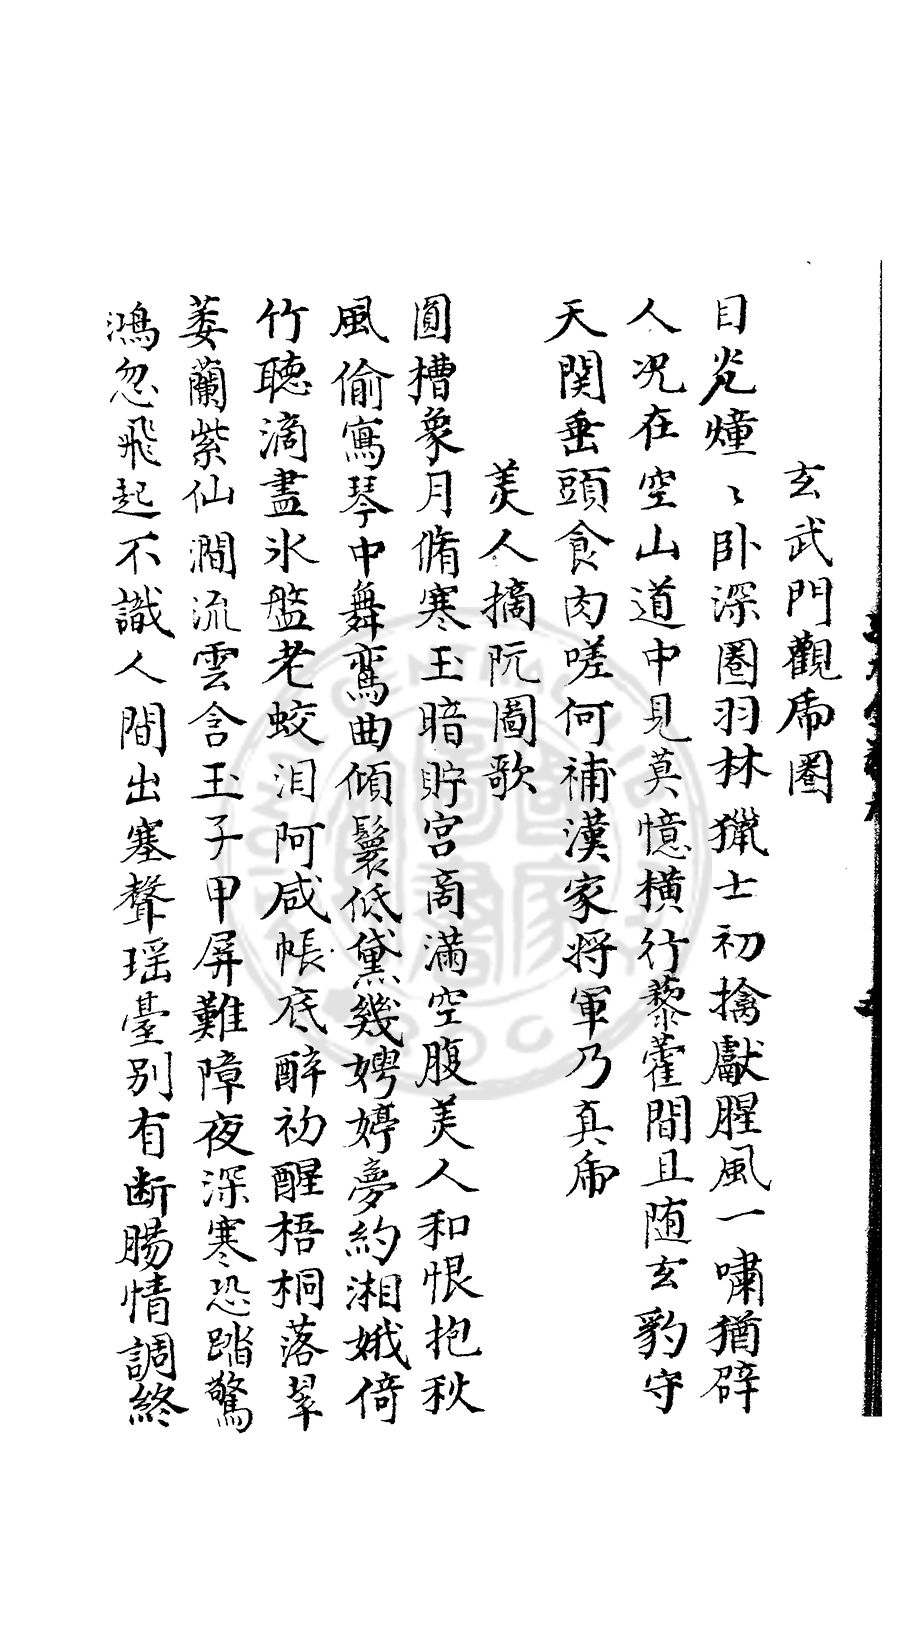 玄武門觀虎圈
目炎爞〻卧深圈羽林獵士初擒獻腥風一嘯猶辟
人况在空山道中見莫憶橫行藜藿間且随玄豹守
天関垂頭食肉嗟何補漢家將軍乃真虎
美人摘阮圖歌
圓槽象月脩寒玉暗貯宫商滿空腹美人和恨抱秋
風偷寫琴中舞鸞曲傾鬟低黛幾娉婷夢約湘娥倚
竹聽滴盡氷盤老蛟泪阿咸帳底醉初醒梧桐落翠
萎蘭紫仙澗流雲含玉子甲屏難障夜深寒恐踏驚
鴻忽飛起不識人間出塞聲瑶臺別有断腸情調終